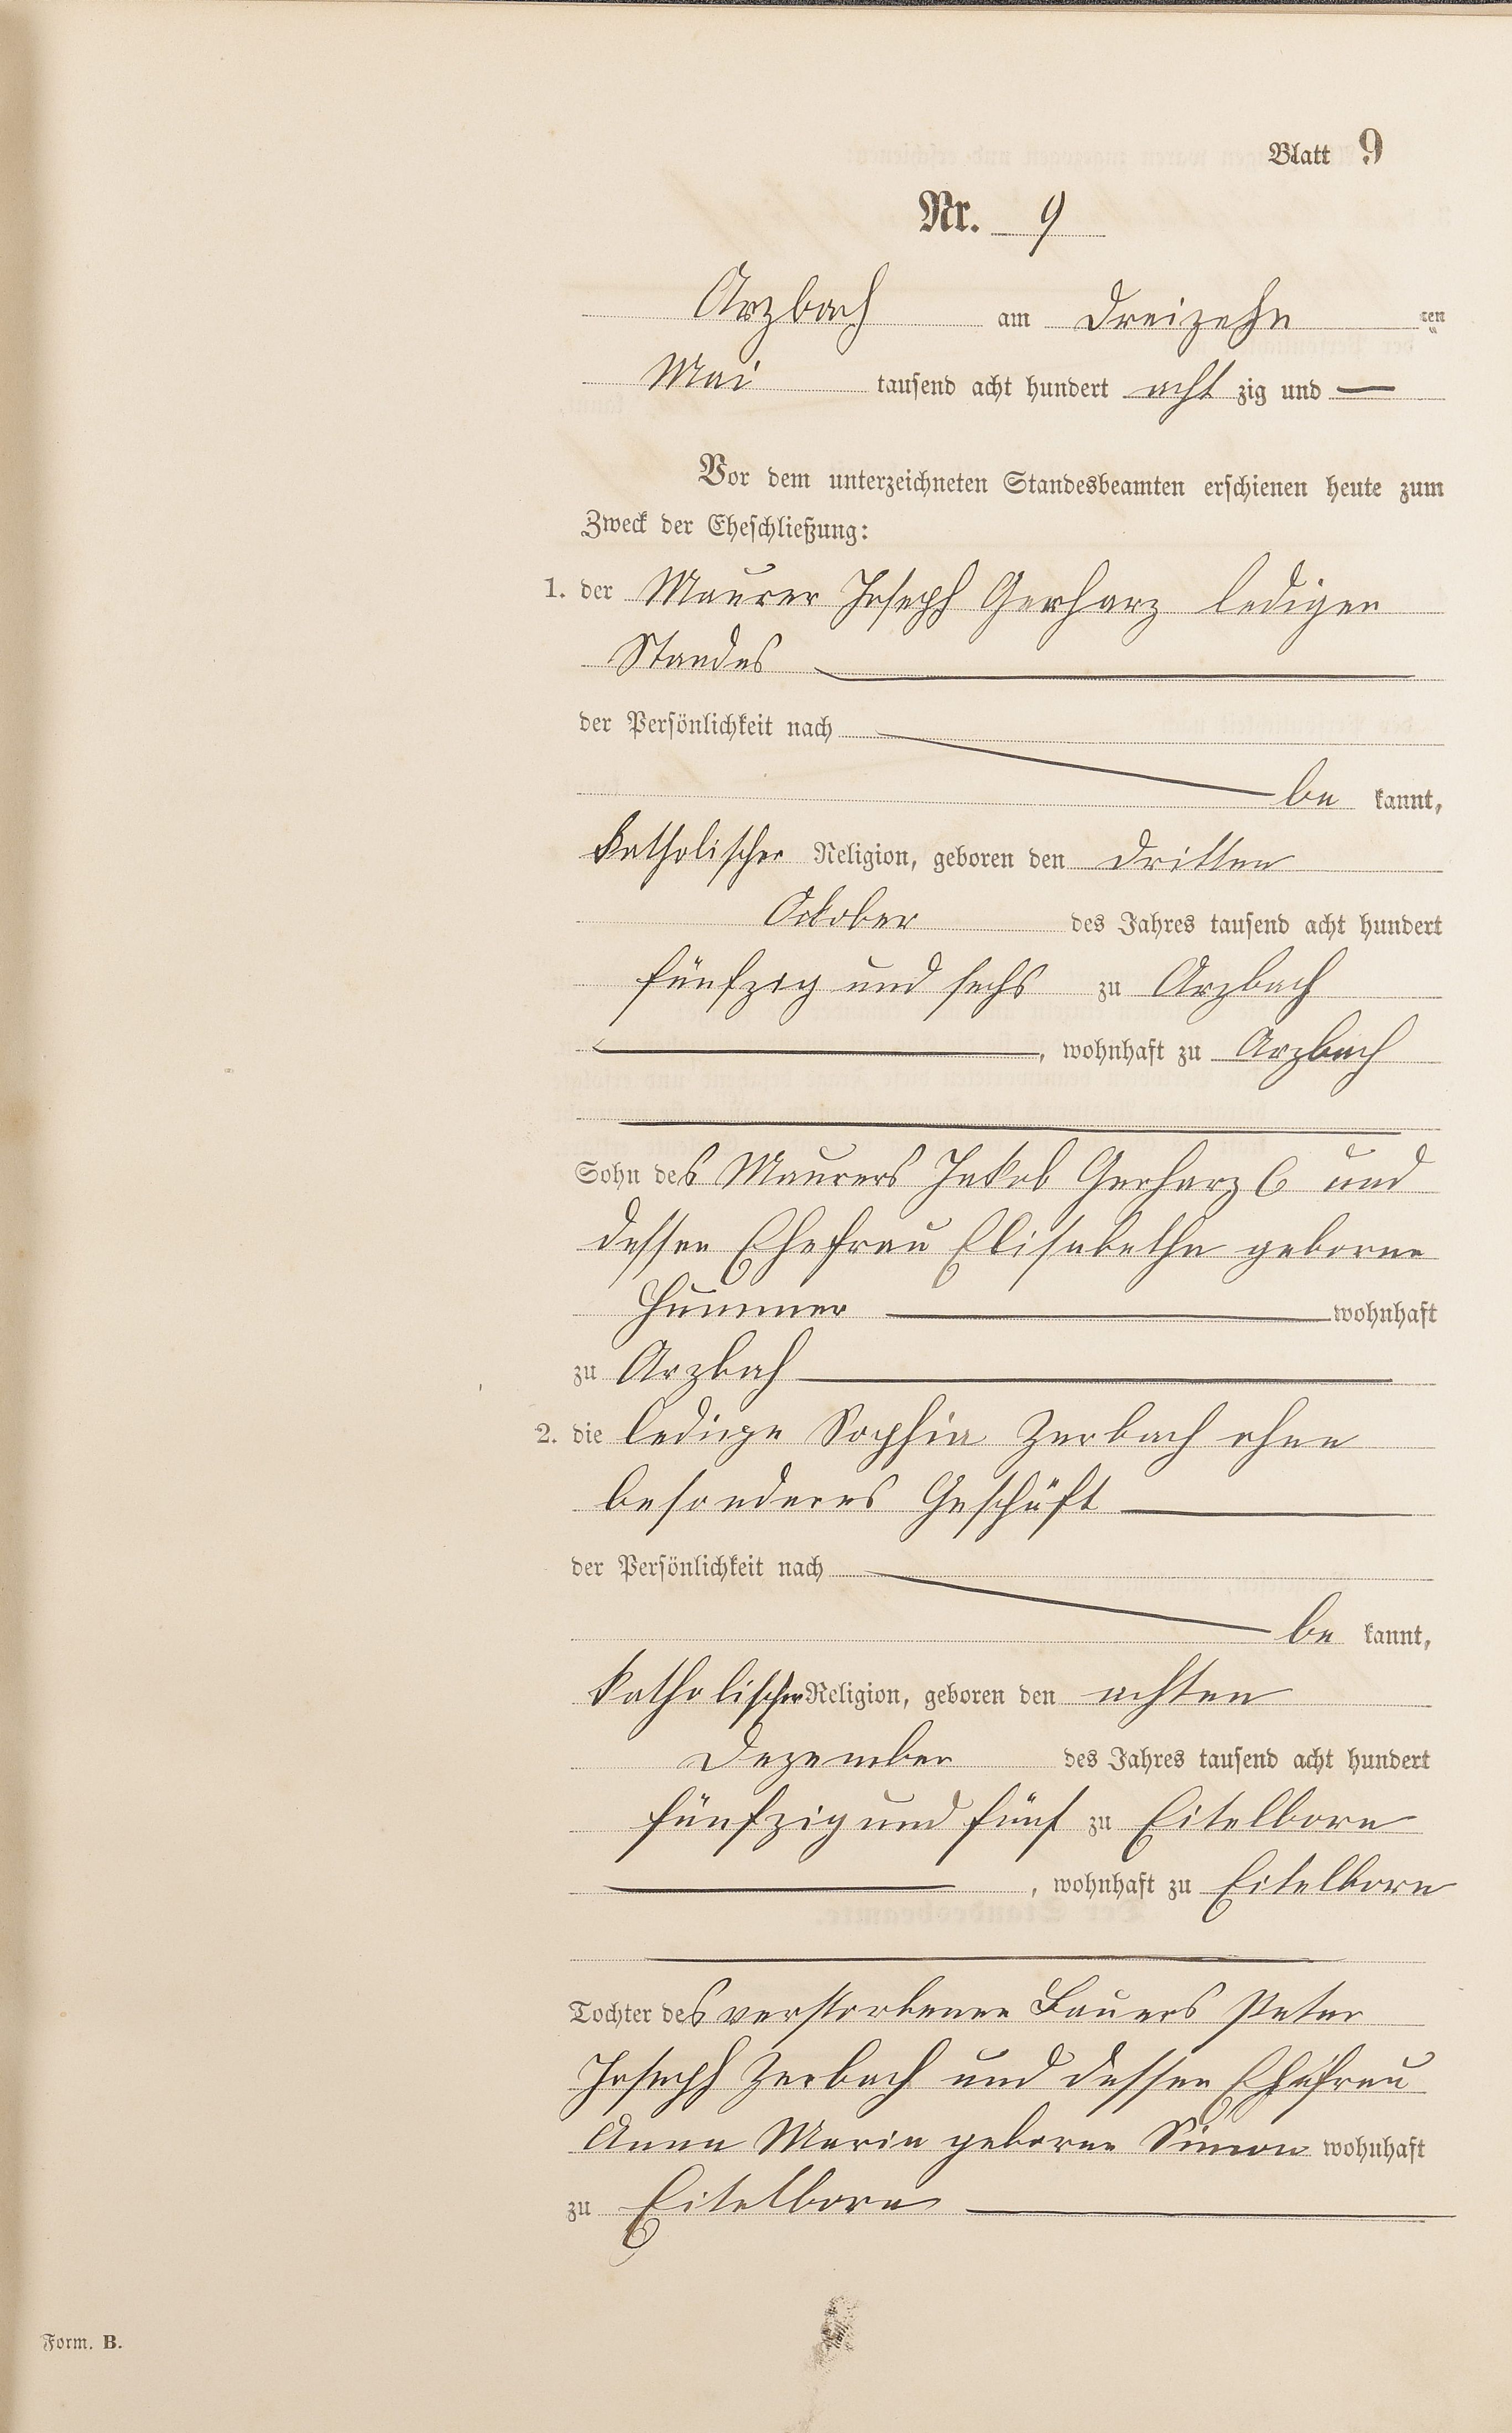 Blatt 9
Nr. 9
Arzbach am dreizehn ten
Mai tausend acht hundert acht zig und —
Vor dem unterzeichneten Standesbeamten erschienen heute zum
Zweck der Eheschließung:
1. der Maurer Joseph Gerharz ledigen
Standes
der Persönlichkeit nach
be kannt,
katholischer Religion, geboren den dritten
October des Jahres tausend acht hundert
fünfzig und sechs zu Arzbach
, wohnhaft zu Arzbach
Sohn des Maurers Jakob Gerharz 6 und
dessen Ehefrau Elisabetha geborne
Hummer wohnhaft
zu Arzbach
2. die ledige Sophia Zerbach ohne
besonderes Geschäft
der Persönlichkeit nach
be kannt,
katholischer Religion, geboren den achten
Dezember des Jahres tausend acht hundert
fünfzig und fünf zu Eitelborn
, wohnhaft zu Eitelborn
Tochter des verstorbenen Bauers Peter
Joseph Zerbach und dessen Ehefrau
Anna Maria geborne Simon wohnhaft
zu Eitelborn
Form. B.